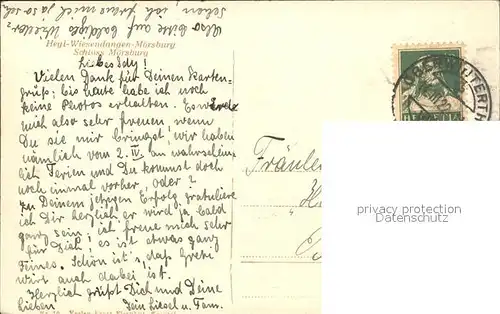 Also bitte auf baldiges Wieder-
sehen, ich freue mich ja so sehr
Hegi-Wiesendangen-Mörsburg
Schloss Mörsburg
Vielen Dank für Deinen Karten-
gruß; bis heute habe ich noch
keine Photos erhalten. Es würde
mich also sehr freuen wenn
Du sie mir bringst, wir haben
nämlich vom 2. IV. an wahrschein-
lich Ferien und Du kommst doch
noch einmal vorher, oder?
Zu Deinem jetzigen Erfolg gratuliere
ich Dir herzlich er wird ja bald
ganz sein; ich freue mich sehr
für Dich, es ist etwas ganz
Feines. Schön ist's, daß Grete
wirt auch dabei ist.
Herzlich grüßt Dich und Deine
Lieben Dein Liesel u. Fam.
HELVETIA
Fräulein
privacy protection